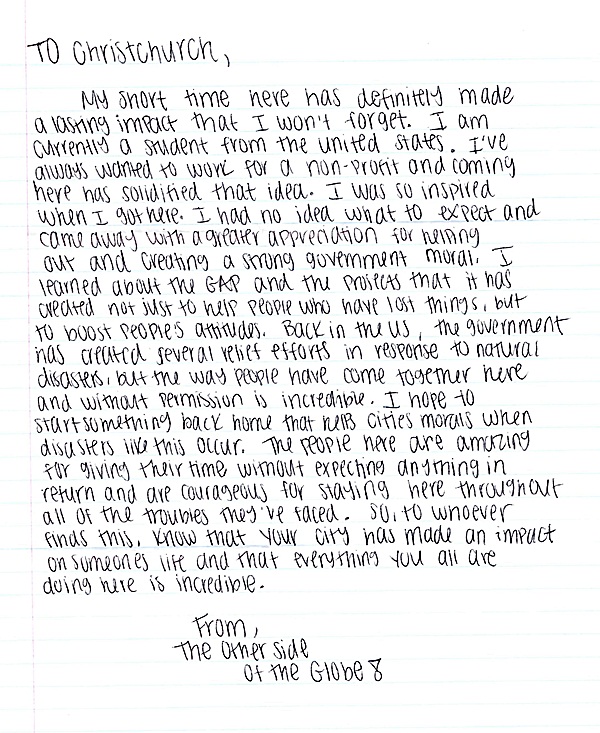 TO Christchurch,
My short time here has definitely made
a lasting impact that I won't forget. I am
currently a student from the united states. I've
always wanted to work for a non-profit and coming
here has solidified that idea. I was so inspired
when I got here. I had no idea what to expect and
came away with a greater appreciation for helping
out and creating a strong government moral. I
learned about the GAP and the projects that it has
created not just to help people who have lost things, but
to boost peoples attitudes. Back in the US, the government
has created several relief efforts in response to natural
disasters, but the way people have come together here
and without permission is incredible. I hope to
start something back home that helps cities morals when
disasters like this occur. The people here are amazing
for giving their time without expecting anything in
return and are courageous for staying here throughout
all of the troubles they've faced. So, to whoever
finds this, know that your city has made an impact
on someones life and that everything you all are
doing here is incredible.
From,
The Other Side
Of the Globe